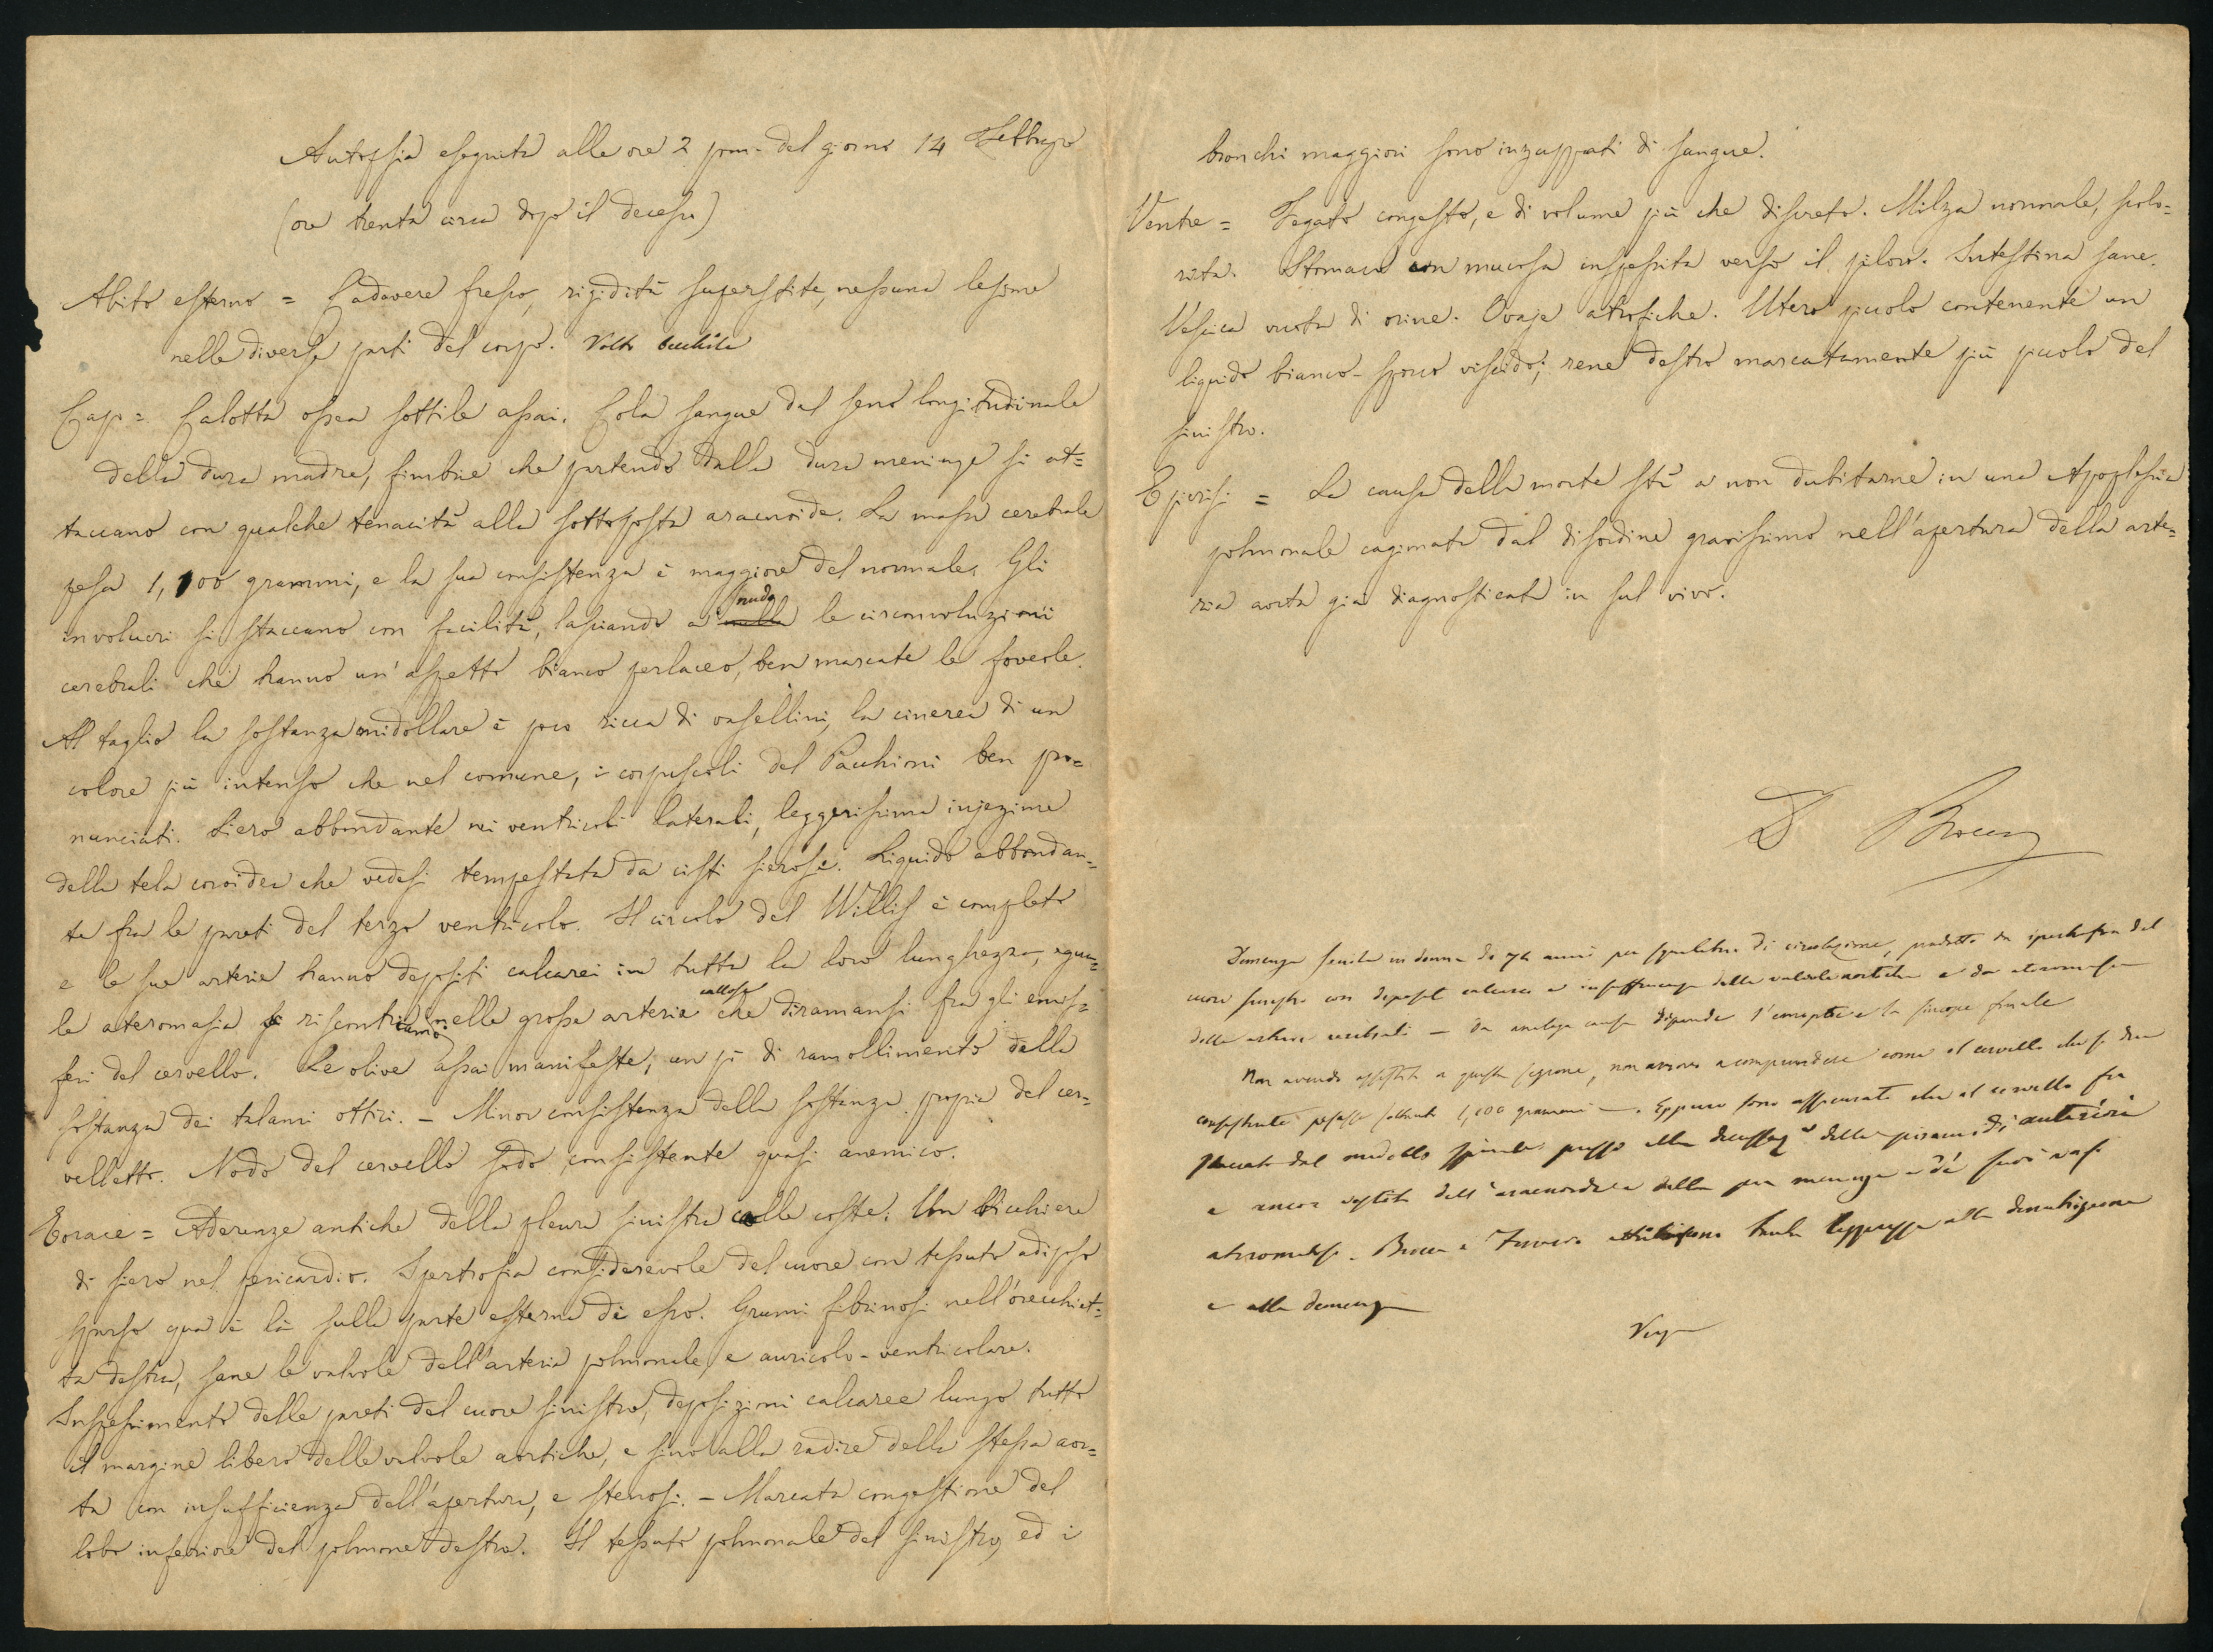 Autopsia eseguita alle ore 2 pom. del giorno 14 Febbrajo
(ore trenta circa dopo il decesso)
Abito esterno = Cadavere fresco, rigidità superstite, nessuna lesione
nelle diverse parti del corpo. Volto
Capo = Calotta ossea sottile assai. Cola sangue dal seno longitudinale
della dura madre, fimbrie che partendo dalla dura meninge si at=
taccano con qualche tenacità alla sottoposta aracnoide. La massa cerebrale
pesa 1,100 grammi, e la sua consistenza è maggiore del normale. Gli
involucri si staccano con facilità, lasciando a nudo le circonvoluzioni
cerebrali che hanno un'aspetto bianco perlaceo, ben marcate le foveole.
Al taglio la sostanza midollare è poco ricca di vasellini, la cinerea di un
colore più intenso che nel comune, i corpuscoli del Pacchioni ben pro=
nunciati. Siero abbondante nei ventricoli laterali, leggerissima injezione
della tela coroidea che vedesi tempestata da cisti sierose. Liquido abbondan=
te fra le pareti del terzo ventricolo. Il circolo del Willis è completo
e le sue arterie hanno depositi calcarei in tutta la loro lunghezza, egua=
le ateromasia riscontriamo nelle grosse arterie callose che diramansi fra gli emis=
feri del cervello. Le olive assai manifeste, un pò di ramollimento della
sostanza dei talami ottici. - Minor consistenza della sostanza propria del cer=
velletto. Nodo del cervello sodo consistente quasi anemico.
Torace = Aderenze antiche della pleura sinistra colle coste. Un bicchiere
di siero nel pericardio. Ipertrofia considerevole del cuore con tessuto adiposo
sparso qua e là sulla parte esterna di esso. Grumi fibrinosi nell'orecchiet=
ta destra, sane le valvole dell'arteria polmonale, e auricolo-ventricolare.
Inspessimento delle pareti del cuore sinistro, deposizioni calcaree lungo tutto
il margine libero delle valvole aortiche, e sino alla radice della stessa aor=
ta con insufficienza dell'apertura, e stenosi. - Marcata congestione del
lobo inferiore del polmone destro. Il tessuto polmonale del sinistro, ed i
bronchi maggiori sono inzuppati di sangue.
Ventre = Fegato congesto, e di volume più che discreto. Milza normale, scolo=
rita. Stomaco con mucosa inspessita verso il piloro. Intestina sane.
Vescica vuota di orine. Ovaje atrofiche. Utero piccolo contenente un
liquido bianco-sporco viscido; rene destro marcatamente più piccolo del
sinistro.
Epicrisi = La causa della morte stà a non dubitarne in una Apoplessia
polmonale cagionata dal disordine gravissimo nell'apertura della arte=
ria aorta già diagnosticata in sul vivo.
D
Demenza senile in donna di 74 anni per squilibrio di circolazione, prodotto da ipertrofia del
cuore sinistro con depositi calcarei e insufficienza delle valvole aortiche e da ateromasia
delle arterie cerebrali - Da analoga causa dipende l'emoptoe e la sincope finale
Non avendo assistito a questa sezione, non arrivo a comprendere come il cervello che si dice
consistente pesasse soltanto 1,100 grammi -. Eppure sono assicurato che il cervello fu
staccato dal midollo spinale presso alla decussaz.e delle piramidi anteriori
e ancora vestito dell'aracnoidea e della pia meninge e dè suoi vasi
ateromatosi. tanta leggerezza alla denutrizione
e alla demenza
Verga